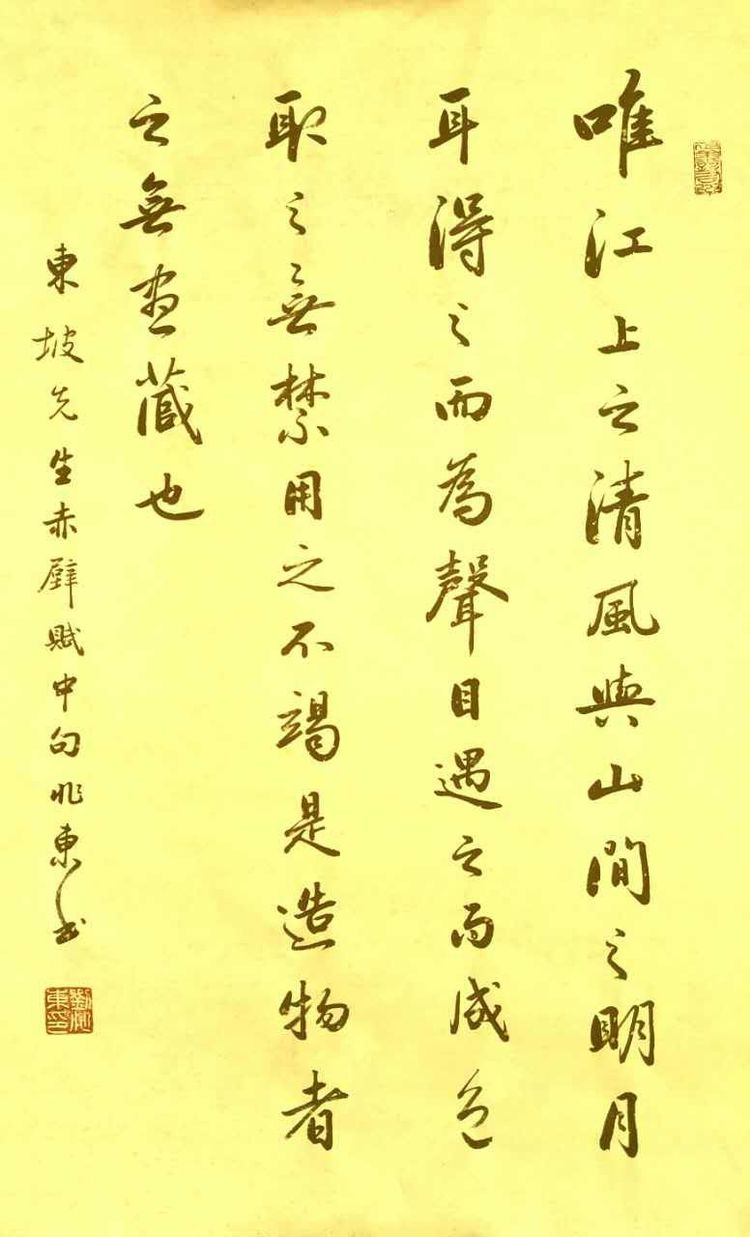 唯江上之清風與山間之明月
耳得之而為聲目遇之而成色
取之無禁用之不竭是造物者
之無盡藏也
東坡先生赤壁賦中句兆東书
劉兆東印